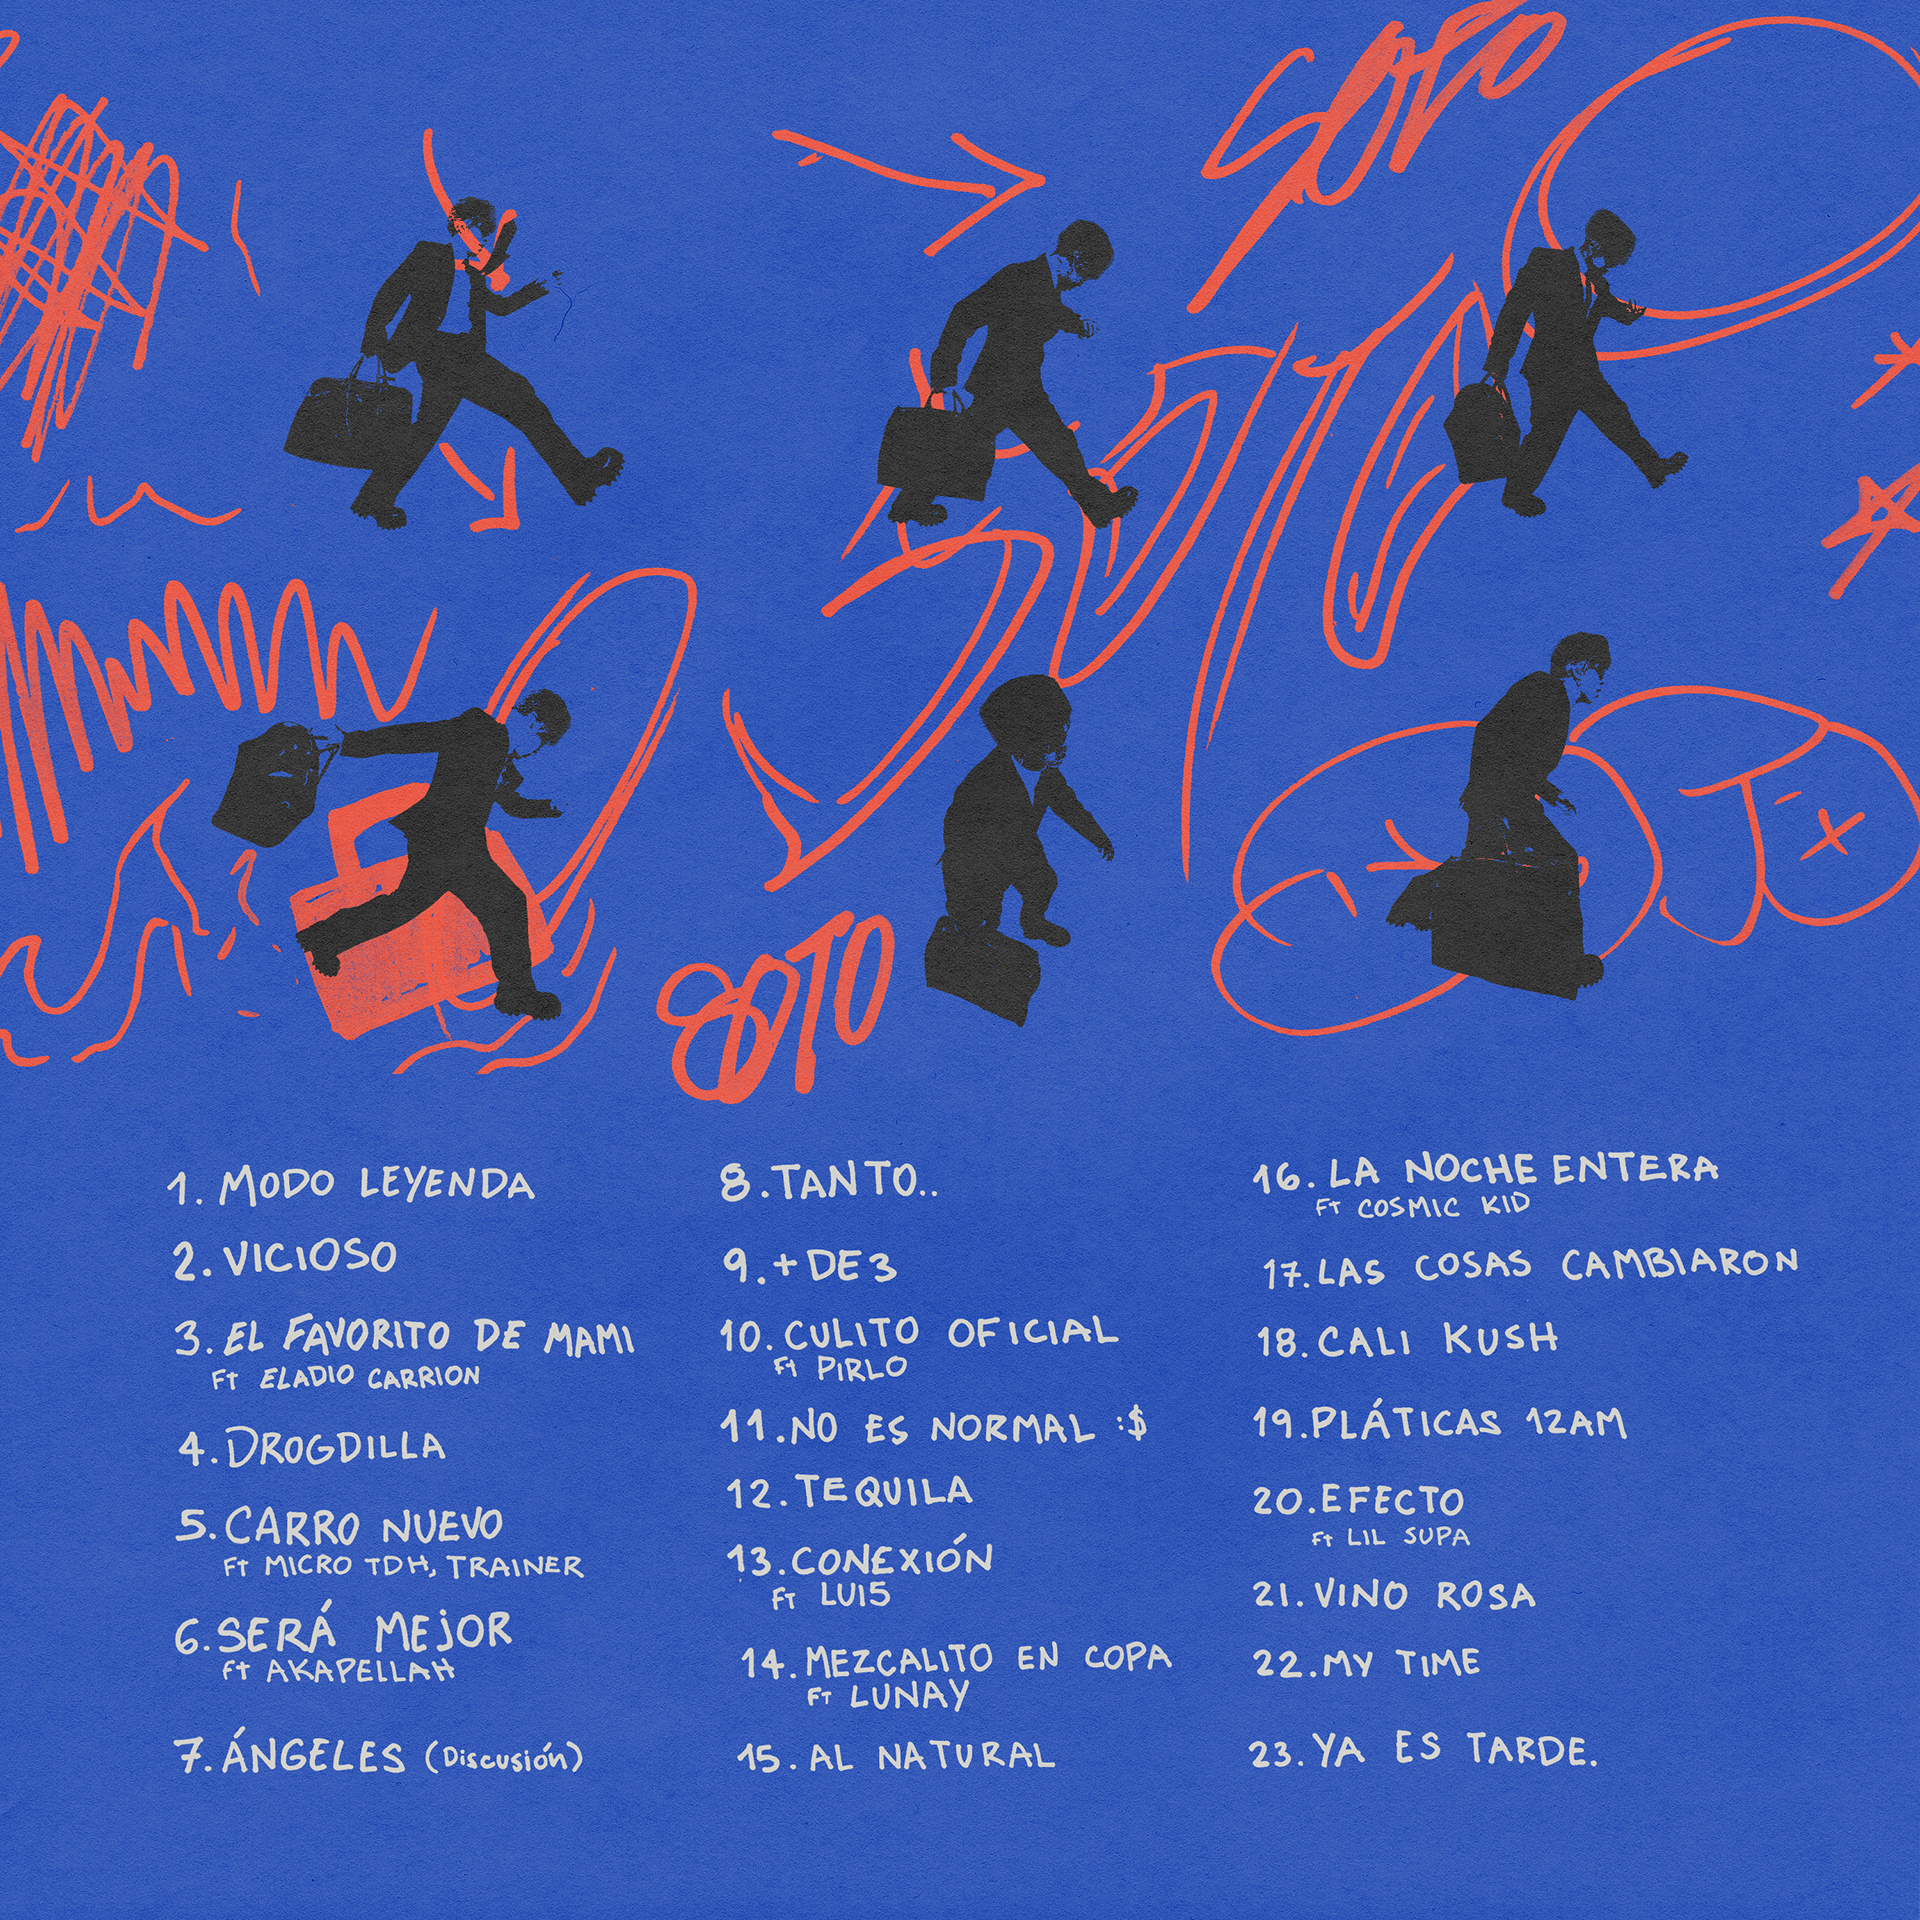 SOTO
SOTO
SOTO
1. MODO LEYENDA
2. VICIOSO
3. EL FAVORITO DE MAMI
FT ELADIO CARRION
4. DROGDILLA
5. CARRO NUEVO
FT MICRO TDH, TRAINER
6. SERÁ MEJOR
FT AKAPELLAH
7. ÁNGELES (Discusión)
8. TANTO..
9. + DE 3
10. CULITO OFICIAL
FT PIRLO
11. NO ES NORMAL :$
12. TEQUILA
13. CONEXIÓN
FT LUI5
14. MEZCALITO EN COPA
FT LUNAY
15. AL NATURAL
16. LA NOCHE ENTERA
FT COSMIC KID
17. LAS COSAS CAMBIARON
18. CALI KUSH
19. PLÁTICAS 12AM
20. EFECTO
FT LIL SUPA
21. VINO ROSA
22. MY TIME
23. YA ES TARDE.